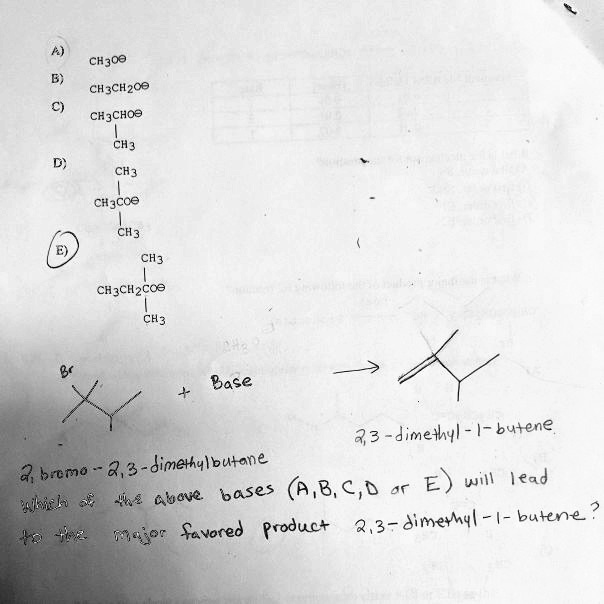 A)
CH3O⊖
B)
CH3CH2O⊖
C)
CH3CHO⊖
CH3
D)
CH3
CH3CO⊖
CH3
E)
CH3
CH3CH2CO⊖
CH3
Br
+ Base
2,3-dimethyl-1-butene
2,bromo-2,3-dimethylbutane
Which of the above bases (A,B,C,D or E) will lead
to the major favored product 2,3-dimethyl-1-butene?